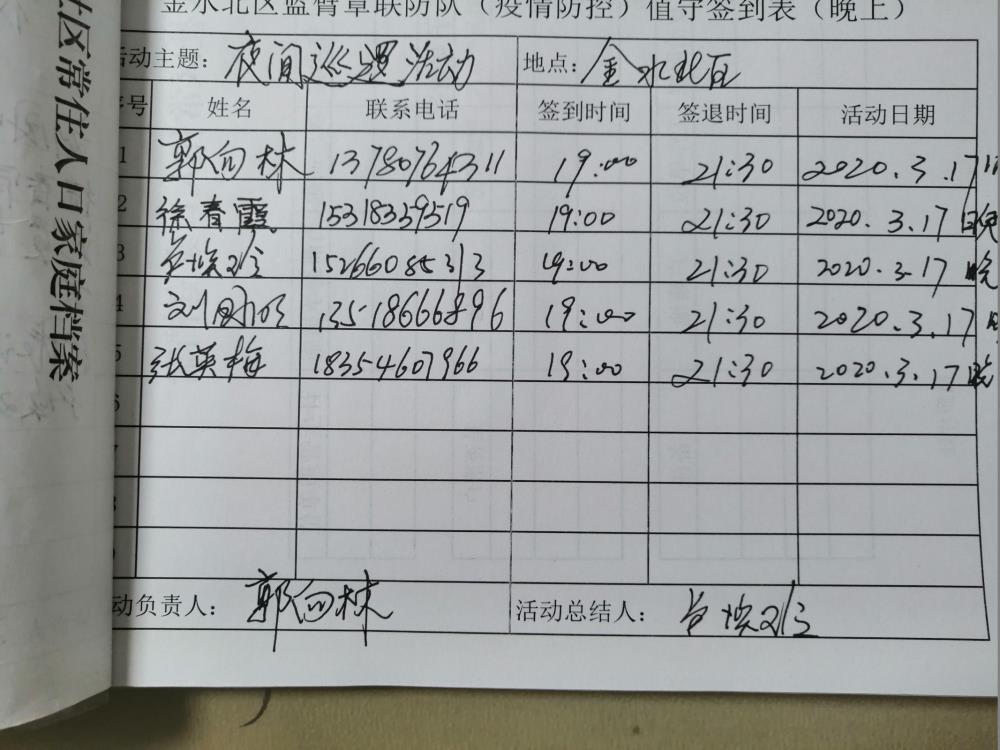 金水北区监督章联防队（疫情防控）值守签到表（晚上）
活动主题： 夜间巡逻活动 地点： 金水北区
序号 姓名 联系电话 签到时间 签退时间 活动日期
1 郭向林 13780764311 19:00 21:30 2020.3.17
2 徐春霞 15318339519 19:00 21:30 2020.3.17日晚
3 15266085313 19:00 21:30 2020.3.17晚
4 刘 13518666896 19:00 21:30 2020.3.17
5 张英梅 18354607966 19:00 21:30 2020.3.17晚
6
7
8
9
活动负责人： 郭向林 活动总结人：
社区常住人口家庭档案